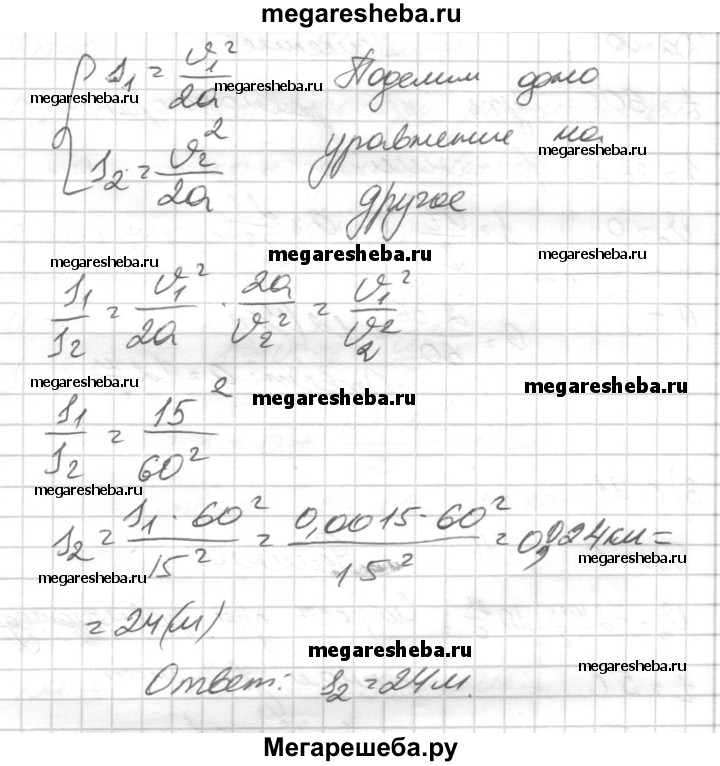 megaresheba.ru
S₁ = v₁²/2a Поделим одно
megaresheba.ru megaresheba.ru
уравнение на
megaresheba.ru
S₂ = v₂²/2a другое
megaresheba.ru megaresheba.ru megaresheba.ru
S₁/S₂ = v₁²/2a · 2a/v₂² = v₁²/v₂²
megaresheba.ru megaresheba.ru megaresheba.ru
S₁/S₂ = 15²/60²
megaresheba.ru
S₂ = S₁·60²/15² = 0,0015·60²/15² = 0,024км =
megaresheba.ru megaresheba.ru
= 24(м)
megaresheba.ru megaresheba.ru
Ответ: S₂ = 24м.
Мегарешеба.ру